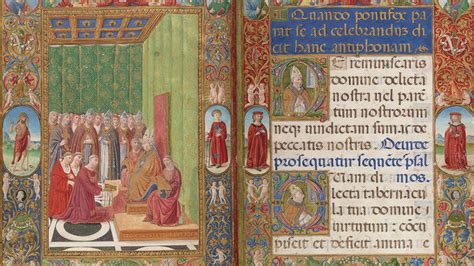 Quando pontifex pa
rat se ad celebrandus di
cit hanc antiphonam.
NE reminiscaris
domine delicta
nostra vel parētum
nostrorum
neque vindictam sumas de
peccatis nostris. Deinde
prosequatur sequētē psal
Q Vam di mos
lecta tabernacu
la tua domine
virtutum: cōcu
piscit et deficit anima